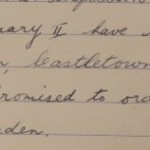 uary II have
, Ceastletown
romised to or
den.